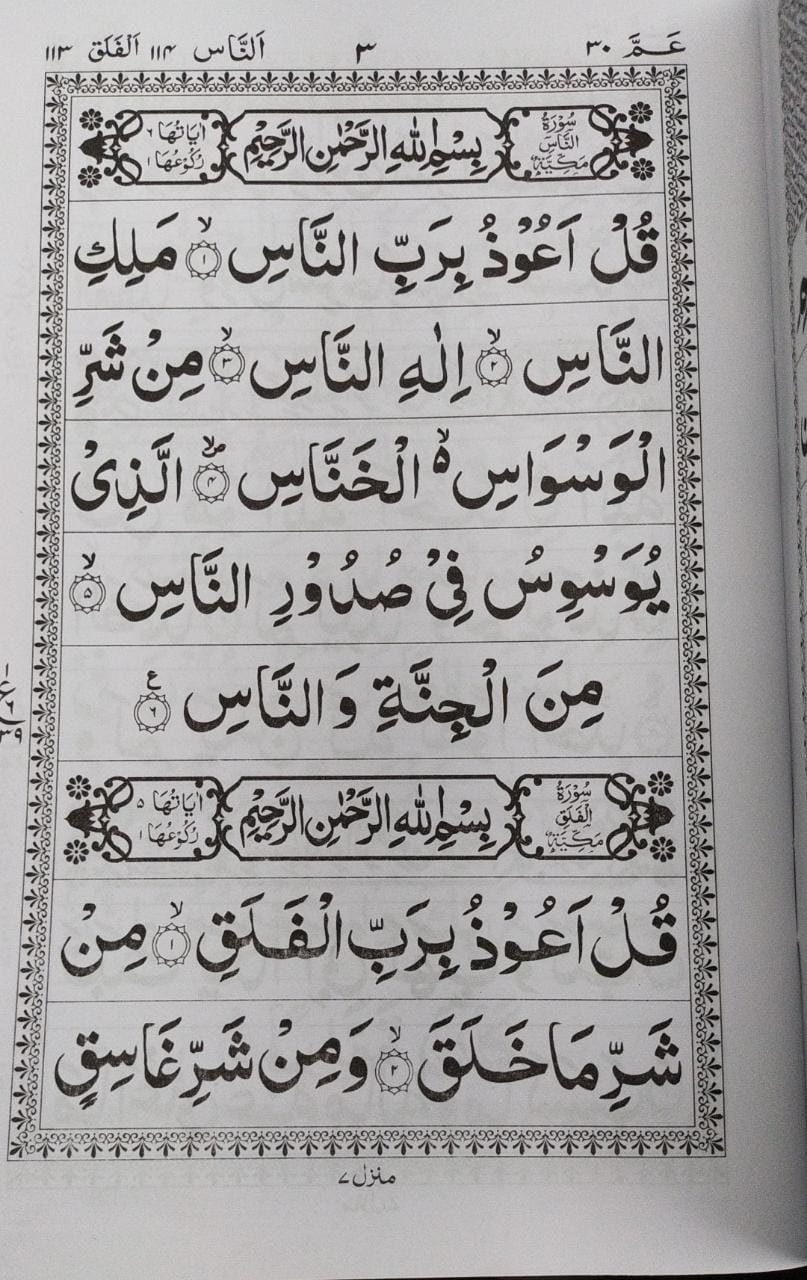 عَـمَّ ٣٠ ٣ اَلنَّاس ١١۴ اَلْفَلَق ١١٣
سُوْرَةُ النَّاسِ مَكِّيَّةٌ بِسْمِ اللّٰهِ الرَّحْمٰنِ الرَّحِيْمِ اٰيَاتُهَا ٦ رُكُوْعُهَا ١
قُلْ اَعُوْذُ بِرَبِّ النَّاسِ ۙ‏﴿١﴾ مَلِكِ
النَّاسِ ۙ‏﴿٢﴾ اِلٰهِ النَّاسِ ۙ‏﴿٣﴾ مِنْ شَرِّ
الْوَسْوَاسِ ۙ۬ الْخَنَّاسِ ۪ۙ‏﴿۴﴾ الَّذِىْ
يُوَسْوِسُ فِىْ صُدُوْرِ النَّاسِ ۙ‏﴿۵﴾
مِنَ الْجِنَّةِ وَ النَّاسِ ‏﴿٦﴾ ع
سُوْرَةُ الْفَلَقِ مَكِّيَّةٌ بِسْمِ اللّٰهِ الرَّحْمٰنِ الرَّحِيْمِ اٰيَاتُهَا ۵ رُكُوْعُهَا ١
قُلْ اَعُوْذُ بِرَبِّ الْفَلَقِ ۙ‏﴿١﴾ مِنْ
شَرِّ مَا خَلَقَ ۙ‏﴿٢﴾ وَمِنْ شَرِّ غَاسِقٍ
منزل ٧